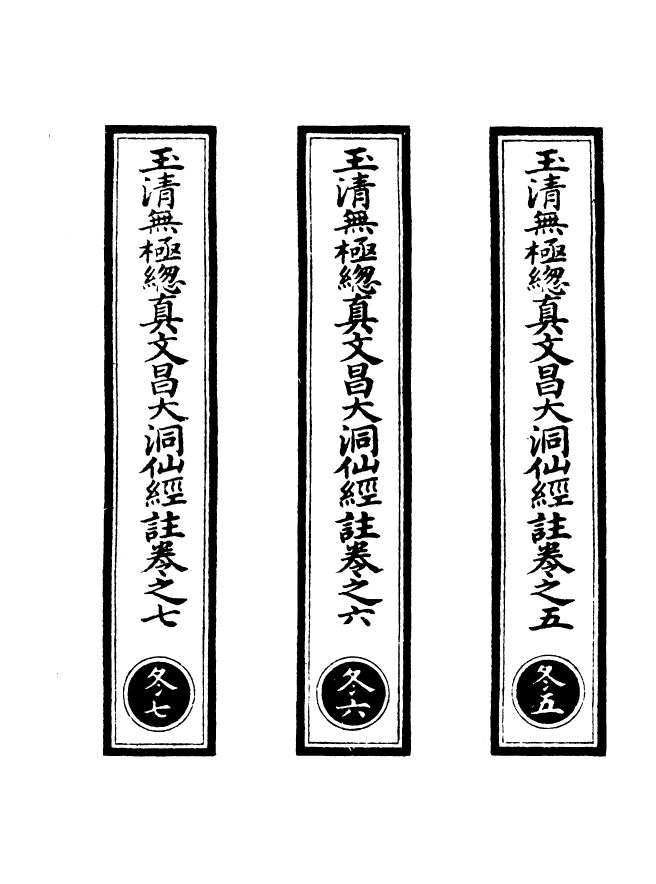 玉清無極緫真文昌大洞仙經註卷之五
冬五
玉清無極緫真文昌大洞仙經註卷之六
冬六
玉清無極緫真文昌大洞仙經註卷之七
冬七